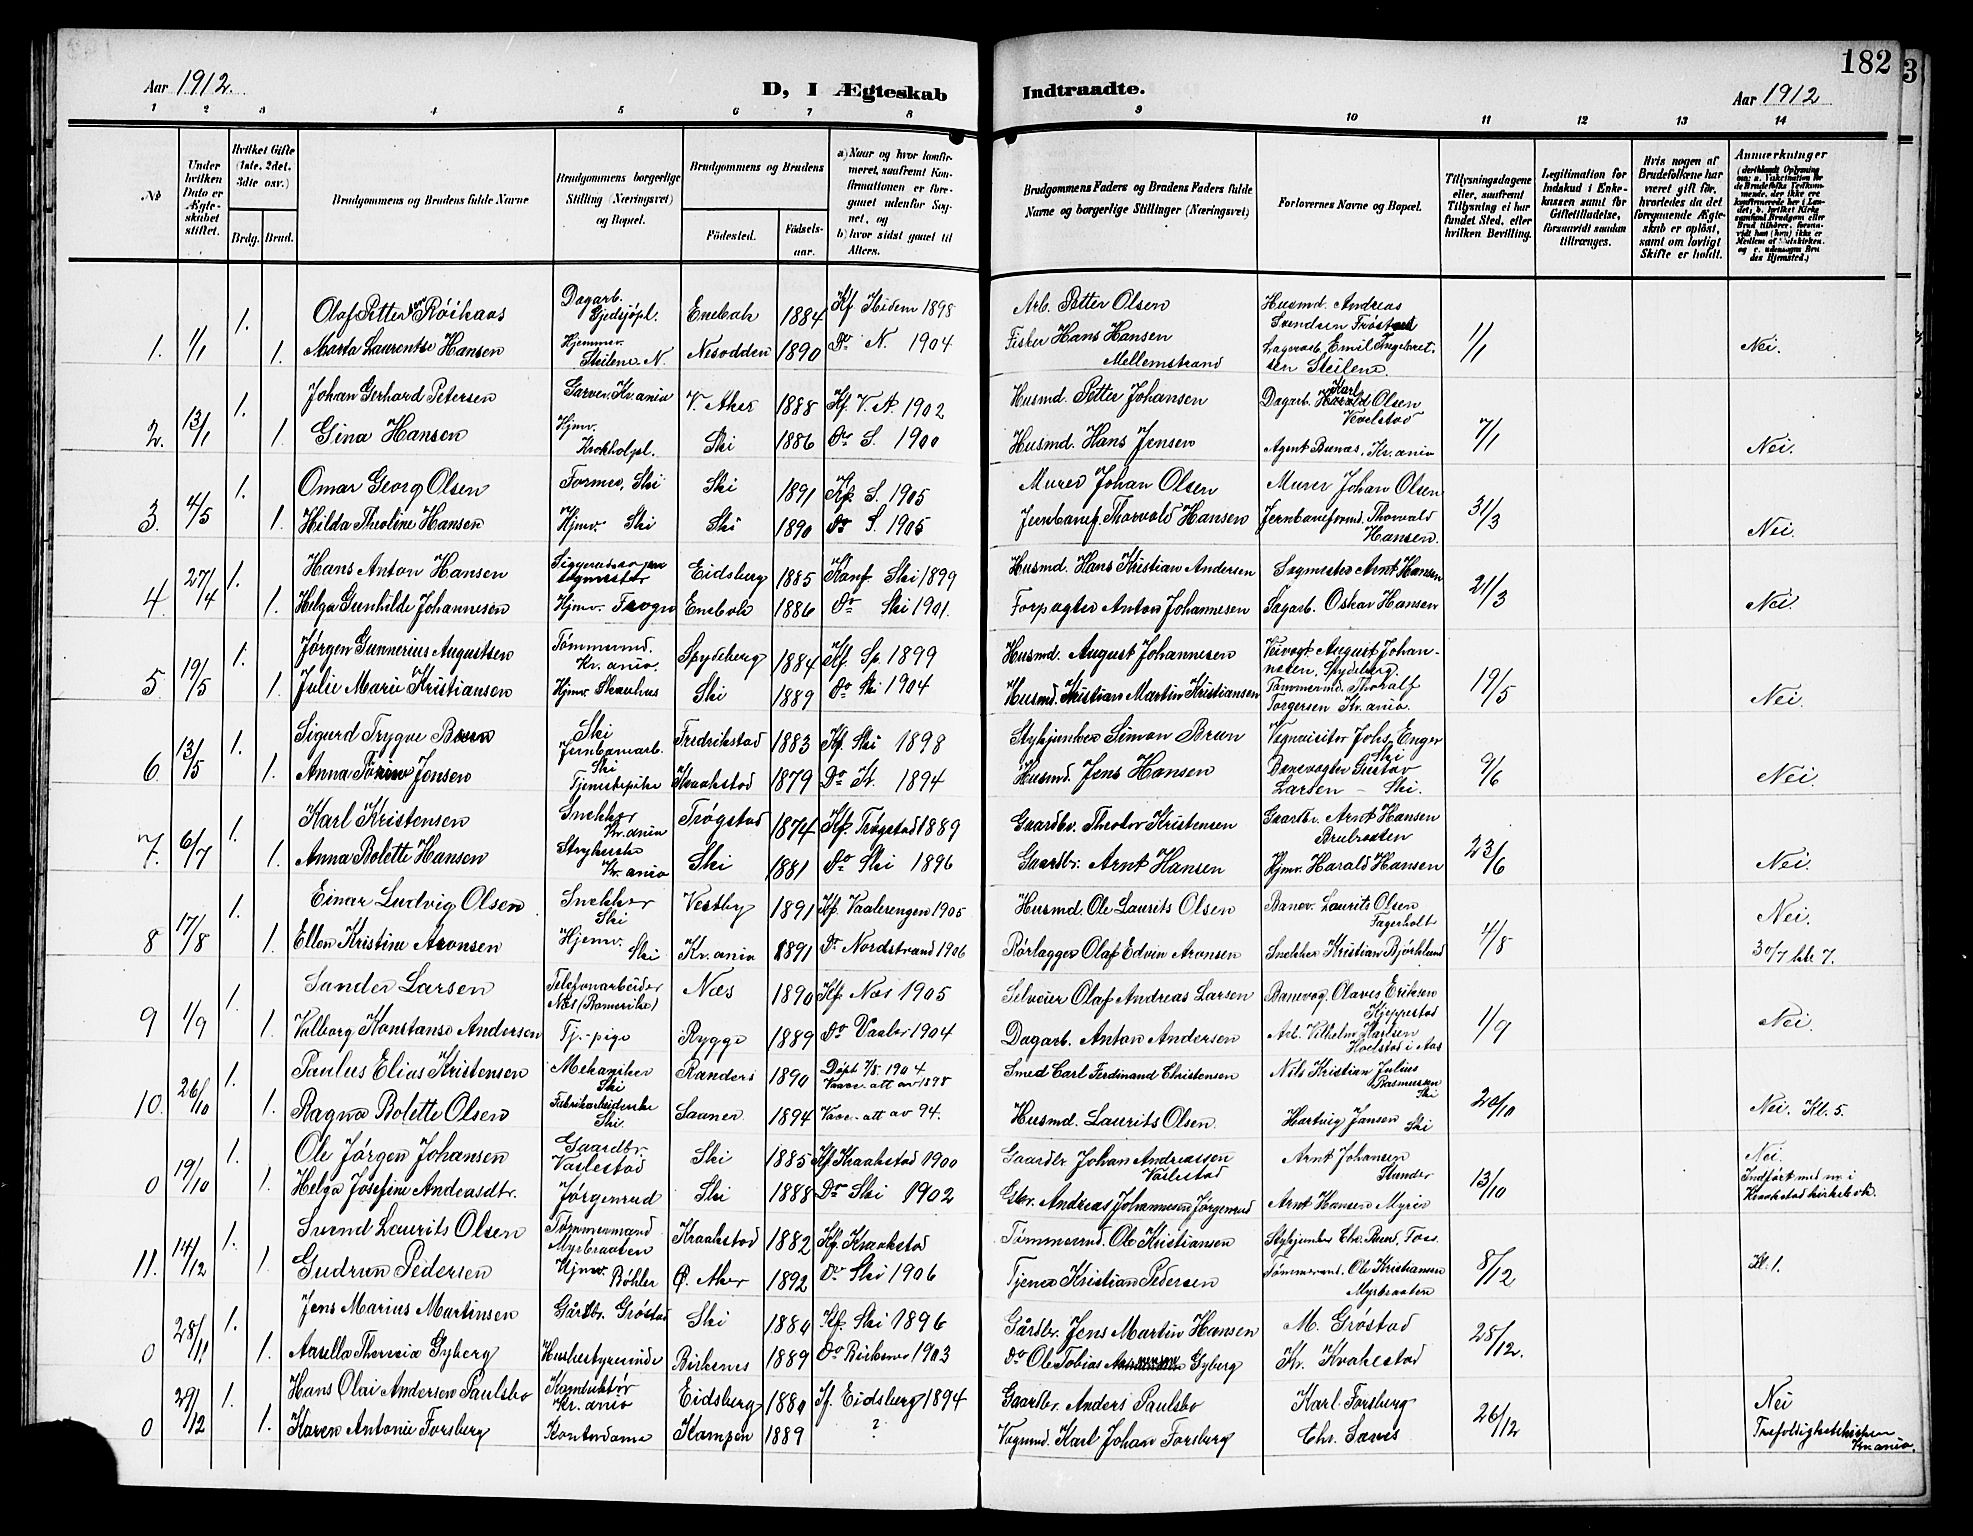 182
3
Aar 1912.
D, I Ægteskab
Indtraadte.
Aar 1912
1 2 3 4 5 6 7 8 9 10 11 12 13 14
No
Under hvilken Dato er Ægteskabet stiftet.
Hvilket Gifte (1ste, 2det, 3die osv.)
Brdg. Brud.
Brudgommens og Brudens fulde Navne
Brudgommens borgerlige Stilling (Næringsvei) og Bopæl.
Brudgommens og Brudens
Fødested. Fødselsaar.
a) Naar og hvor konfirmeret, saafremt Konfirmationen er foregaaet udenfor Sognet, og
b) hvor sidst gaaet til Alters.
Brudgommens Faders og Brudens Faders fulde Navne og borgerlige Stillinger (Næringsvei)
Forlovernes Navne og Bopæl.
Tillysningsdagene eller, saafremt Tillysning ei har fundet Sted, efter hvilken Bevilling.
Legitimation for Indskud i Enkekassen samt for Giftetilladelse, forsaavidt saadan tiltrænges.
Hvis nogen af Brudefolkene har været gift før, hvorledes da det foregaaende Ægteskab er opløst, samt om lovligt Skifte er holdt.
Anmærkninger
(deriblandt Oplysning om: a. Vaksination for de Brudefolks Vedkommende, der ikke ere konfirmerede her i Landet, b. hvilket Kirkesamfund Brudgom eller Brud tilhører, forsaavidt han (hun) ikke er Medlem af Statskirken, og c. udensogns Brudes Hjemsted.)
1. 1/1 1. Olaf Petter Røihaas Dagarb. Gjedsjøpl. Enebak 1884 Kf. Skidem 1898 Arb. Petter Olsen Husmd. Andreas Svendsen Frøstad 1/1
1. Marta Laurentse Hansen Hjemmev. Steilene N. Nesodden 1890 Do N. 1904 Fisker Hans Hansen Mellemstrand Lagerarb. Emil Ingebretsen Steilene. Nei.
2. 13/1 1. Johan Gerhard Petersen Garver. Kr.ania V. Aker 1888 Kf. V. A. 1902 Husmd. Petter Johansen Dagarb. Karl Olsen Vevelstad 7/1
1. Gina Hansen Hjmv. Krokholpl. Ski 1886 Do S. 1900 Husmd. Hans Jensen Agent Bunæs, Kr.ania Nei.
3. 4/5 1. Omar Georg Olsen Former, Ski Ski 1891 Kf. S. 1905 Murer Johan Olsen Murer Johan Olsen 31/3
1. Hilda Theoline Hansen Hjmv. Ski Ski 1890 do S. 1905 Jernbanef. Thorvald Hansen Jernbaneformd. Thorvald Hansen. Nei.
4. 27/4 1. Hans Anton Hansen Eidsberg 1885 Konf. Ski 1899 Husmd. Hans Kristian Andersen Sagmester Arnt Hansen 21/3
1. Helga Gunhilde Johannesen Hjmv. Trogn Enebak 1886 do Ski 1901. Forpagter Anton Johannesen Sagarb. Oskar Hansen Nei.
5 19/5 1. Jørgen Gunnerius Augustsen Tømmermd. Kr.ania. Spydeberg 1884 Kf. Sp. 1899 Husmd. August Johannesen Veivogt August Johannesen, Spydeberg 19/5
1. Julie Marie Kristiansen Hjmv. Skauhus Ski 1889 do Ski 1904 Husmd. Kristian Martin Kristiansen Tømmermd. Thoralf Torgersen Kr.ania. Nei.
6 13/5 1. Sigurd Trygve Bruun Ski Jernbanearb. Fredrikstad 1883 Kf. Ski 1898 Stykjunker Simon Bruun Vognvisitør Johs. Enger Ski 9/6
1. Anna Jensen Ski Tjenestepike Kraakstad 1879 Do Kr. 1894 Husmd. Jens Hansen Banevogter Gustav Larsen – Ski. Nei.
7. 6/7 1. Karl Kristensen Snekker Kr.ania Trøgstad 1874 Kf. Trøgstad 1889 Gaardbr. Theodor Kristensen Gaardbr. Arnt Hansen Brubraaten 23/6
1. Anna Bolette Hansen Strykerske Kr.ania Ski 1881 Do Ski 1896 Gaardbr. Arnt Hansen Hjmv. Harald Hansen Nei.
8 17/8 1. Einar Ludvig Olsen Snekker Ski Vestby 1891 Kf. Vaalerengen 1905 Husmd. Ole Laurits Olsen Banev. Laurits Olsen Fagerholt 4/8 Nei.
1. Ellen Kristine Aronsen Hjemv. Ski Kr.ania 1891 Do Nordstrand 1906 Rørlægger Olaf Edvin Aronsen Snekker Kristian Bjørklund 30/7 kl. 7.
9 1/9 1. Sander Larsen Telefonarbeider Næs (Romerike) Næs 1890 Kf. Næs 1905 Selveier Olaf Andreas Larsen Banevog. Olaves Eriksen Kjeppestad 1/9
1. Valborg Konstanse Andersen Tj.-pige Rygge 1889 Do Vaaler 1904 Dagarb. Anton Andersen Arb. Vilhelm Karlsen Holstad i Aas Nei.
10. 26/10 1. Paulus Elias Kristensen Mekaniker Ski Randers 1890 Døpt 7/8. 1904 Vacc.-att av 1898 Smed Carl Ferdinand Christensen Nils Kristian Julius Rasmussen Ski 20/10
1. Ragna Bolette Olsen Fabrikarbeiderske Ski. Saaner 1894 Vacc.-att av 94. Husmd. Laurits Olsen. Hartvig Jansen Ski Nei. Kl. 5.
0 19/10 1. Ole Jørgen Johansen Gaardbr. Vaslestad Ski 1885 Kf. Kraakstad 1900 Gaardbr. Johan Andreassen Vaslestad Arnt Johansen Stunder 13/10 Nei.
1. Helga Josefine Andreasdtr. Jørgenrud Ski 1888 Do Ski 1902 Gbr. Andreas Johannesen Jørgenrud Arnt Hansen Myrer Indført med nr. i Kraakstad kirkebok.
11. 14/12 1. Svend Laurits Olsen Tømmermand Myrbraaten Kraakstad 1882 Kf. Kraakstad Tømmermd. Ole Kristiansen Stykjunker Chr. Bend. Foss. 8/12
1. Gudrun Pedersen Hjmv. Bøhler Ø. Aker 1892 do Ski 1906 Tjener Kristian Pedersen Tømmermd. Ole Kristiansen Myrbraaten Kl. 1.
0 28/11 1. Jens Marius Martinsen Gårdbr. Grøstad Ski 1880 Kf. Ski 1896 Gårdbr. Jens Martin Hansen M. Grøstad 25/12.
1. Aasella Theresia Gyberg Husbestyrerinde Birkenes 1889 do Birkenes 1903 do Ole Tobias Gyberg Kr. Kvakestad
0 29/12 1. Hans Olai Andersen Paulsbo Konduktør Kr.ania Eidsberg 1880 Kf. Eidsberg 1894 Gaardbr. Anders Paulsbo Karl Forsberg 26/12 Nei
1. Karen Antonie Forsberg Kontordame Kampen 1889 ? Vogmd. Karl Johan Forsberg Chr. Saxes Trefoldighetskirken Kr.ania.